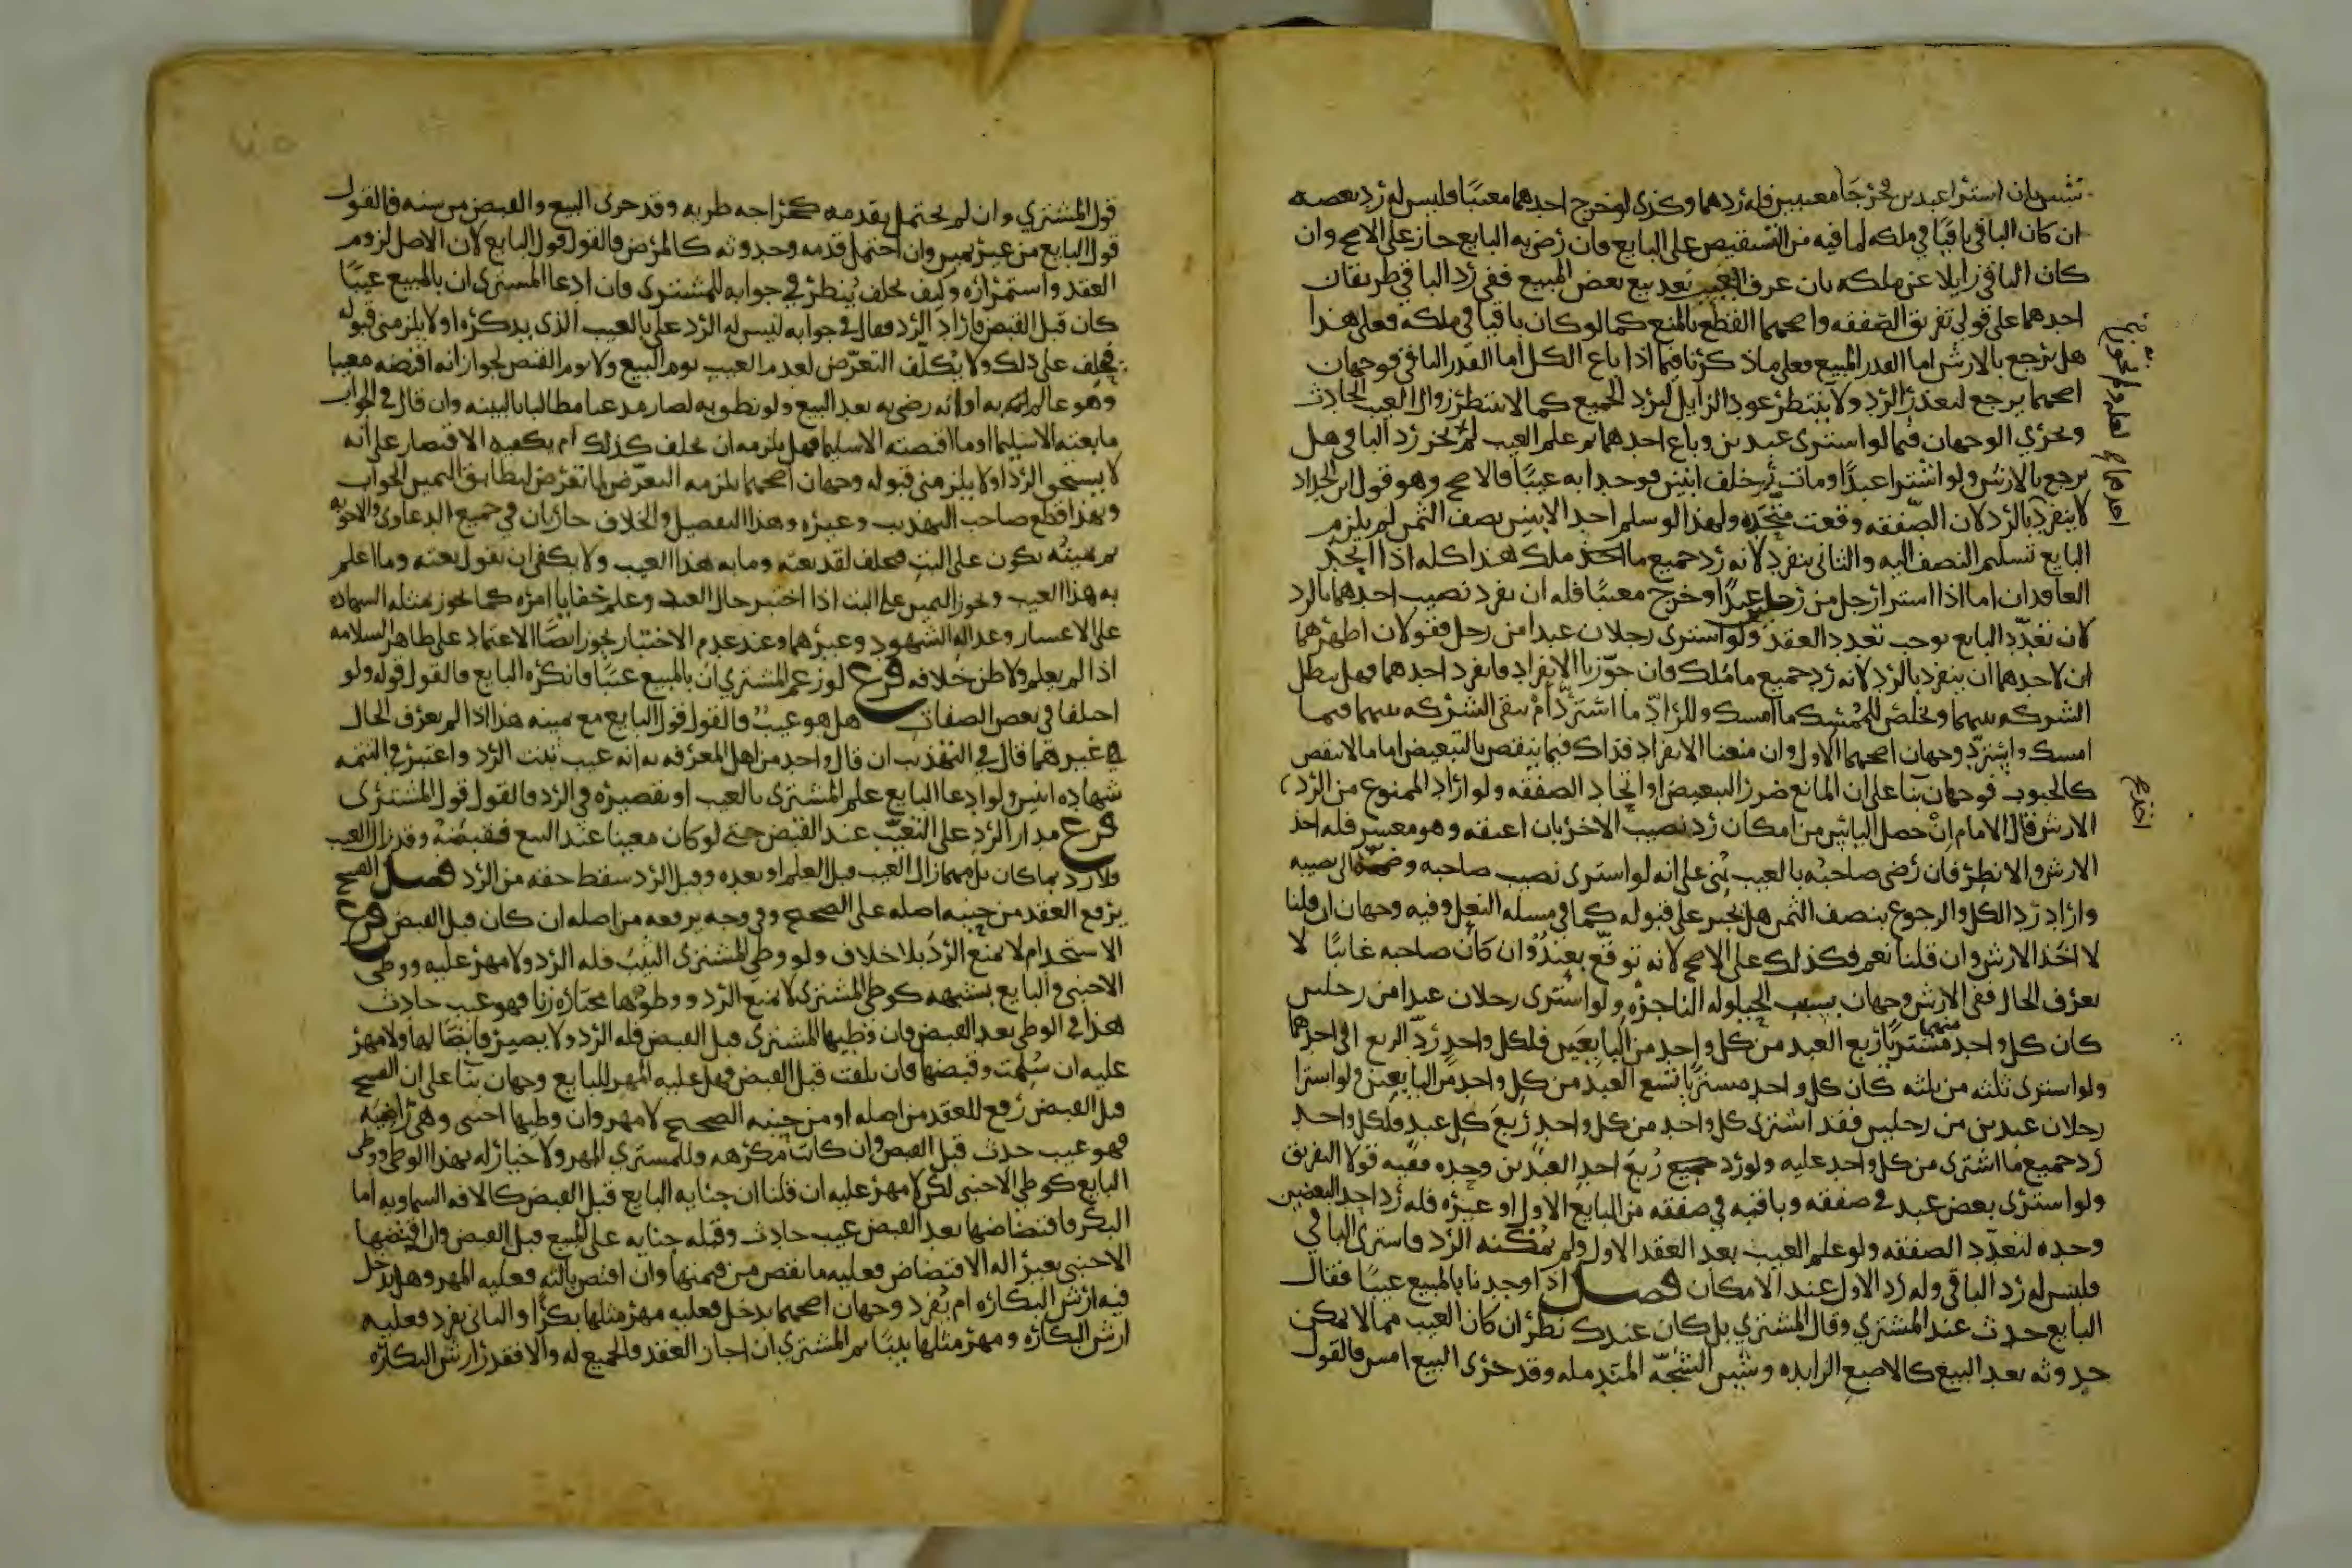 شيئين ان اشترا عبدين فخرجا معيبين فله ردهما وكذى لو خرج احدهما معيبًا وليس له رد بعضه
ان كان الباقي باقيًا في ملكه لما فيه من التشقيص على البايع فان رضي به البايع جاز على الاصح وان
كان الباقي زايلا عن ملكه بان عرف العيب بعد بيع بعض المبيع ففي رد الباقي طريقان
احدهما على قولي تفريق الصفقه واصحهما القطع بالمنع كما لو كان باقيا في ملكه فعلى هذا
هل يرجع بالارش اما القدر المبيع فعلى ماذكرنا فيما اذا باع الكل اما القدر الباقي فوجهان
اصحهما يرجع لتعذر الرد ولا ينتظر عود الزايل ليرد الجميع كما لا ينتظر زوال العيب الحادث
ويجري الوجهان فيما لو اشترى عبدين وباع احدهما ثم علم العيب لم يجز رد الباقي هل
يرجع بالارش ولو اشترا عبدًا ومات وخلف ابنين فوجدا به عيبًا فالاصح وهو قول ابن الحداد
لا ينفرد بالرد لان الصفقه وقعت متحده ولهذا لو سلم احد الابنين نصف الثمن لم يلزم
البايع تسليم النصف اليه والثاني ينفرد لانه رد جميع ما ملك هذا كله اذا اتحد
العاقدان اما اذا اشترا رجل من رجلين عبدًا وخرج معيبًا فله ان يفرد نصيب احدهما بالرد
لان تعدد البايع يوجب تعدد العقد ولو اشترى رجلان عبدا من رجل فقولان اظهرهما
ان لاحدهما ان ينفرد بالرد لانه رد جميع ما ملك فان جوزنا الانفراد فانفرد احدهما فهل يبطل
الشركه بينهما ويخلص للممسك ما امسك وللراد ما استرد ام تبقى الشركه بينهما فيما
امسك واسترد وجهان اصحهما الاول وان منعنا الانفراد فذاك فيما ينقص بالتبعيض اما ما لا ينقص
كالحبوب فوجهان بنا على ان المانع ضرر التبعيض او اتحاد الصفقه ولو اراد الممنوع من الرد
الارش قال الامام ان حصل الياس من امكان رد نصيب الاخر بان اعتقه وهو معسر فله اخذ
الارش والا نظر فان رضي صاحبه بالعيب بني على انه لو اشترى نصيب صاحبه وضمه الى نصيبه
واراد رد الكل والرجوع بنصف الثمن هل يجبر على قبوله كما في مسله النعل وفيه وجهان ان قلنا
لا اخذ الارش وان قلنا نعم فكذلك على الاصح لانه توقع بعيد وان كان صاحبه غايبًا لا
يعرف الحال ففي الارش وجهان بسبب الحيلوله الناجزه ولو اشترى رجلان عبدا من رجلين
كان كل واحد منهما مشتريًا ربع العبد من كل واحد من البايعين فلكل واحد رد الربع الى احدهما
ولو اشترى ثلثه من ثلثه كان كل واحد مشتريًا تسع العبد من كل واحد من البايعين ولو اشترا
رجلان عبدين من رجلين فقد اشترى كل واحد من كل واحد ربع كل عبد فلكل واحد
رد جميع ما اشترى من كل واحد عليه ولو رد ربع احد العبدين وحده ففيه قولا التفريق
ولو اشترى بعض عبد في صفقه وباقيه في صفقه من البايع الاول او غيره فله رد احد البعضين
وحده لتعدد الصفقه ولو علم العيب بعد العقد الاول ولم يمكنه الرد فاشترى الباقي
فليس له رد الباقي وله رد الاول عند الامكان فصل اذا وجدنا بالمبيع عيبًا فقال
البايع حدث عند المشتري وقال المشتري بل كان عندك نظر ان كان العيب مما لا يمكن
حدوثه بعد البيع كالاصبع الزايده وشين الشجه المندمله وقد جرى البيع امس فالقول
قول المشتري وان لم يحتمل تقدمه كجراحه طريه وقد جرى البيع والقبض من سنه فالقول
قول البايع من غير يمين وان احتمل قدمه وحدوثه كالمرض فالقول قول البايع لان الاصل لزوم
العقد واستمراره وكيف يحلف ينظر في جوابه للمشترى فان ادعا المشترى ان بالمبيع عيبًا
كان قبل القبض فاراد الرد فقال في جوابه ليس له الرد علي بالعيب الذى يذكره او لا يلزمني قبوله
فيحلف على ذلك ولا يكلف التعرض لعدم العيب يوم البيع ولا يوم القبض لجواز انه اقبضه معيبا
وهو عالم به او انه رضي به بعد البيع ولو نطق به لصار مدعيا مطالبا بالبينه وان قال في الجواب
ما بعته الا سليما او ما اقبضته الا سليما فهل يلزمه ان يحلف كذلك ام يكفيه الاقتصار على انه
لا يستحق الرد او لا يلزمني قبوله وجهان اصحهما يلزمه التعرض لما تعرض لتطابق اليمين الجواب
وبهذا قطع صاحب التهذيب وغيره وهذا التفصيل والخلاف جاريان في جميع الدعاوى والاجوبه
ثم يمينه تكون على البت فيحلف لقد بعته وما به هذا العيب ولا يكفي ان يقول بعته وما اعلم
به هذا العيب ويجوز اليمين على البت اذا اختبر حال العبد وعلم خفايا امره كما يجوز بمثله الشهاده
على الاعسار وعداله الشهود وغيرهما وعند عدم الاختبار يجوز ايضًا الاعتماد على ظاهر السلامه
اذا لم يعلم ولا ظن خلافه فرع لو زعم المشتري ان بالمبيع عيبًا فانكره البايع فالقول قوله ولو
اختلفا في بعض الصفات هل هو عيب فالقول قول البايع مع يمينه هذا اذا لم يعرف الحال
من غيرهما قال في التهذيب ان قال واحد من اهل المعرفه به انه عيب ثبت الرد واعتبر في التتمه
شهاده اثنين ولو ادعا البايع علم المشترى بالعيب او تقصيره في الرد فالقول قول المشترى
فرع مدار الرد على التعيب عند القبض حتى لو كان معيبا عند البيع فقبضه وقد زال العيب
فلا رد بما كان بل مهما زال العيب قبل العلم او بعده وقبل الرد سقط حقه من الرد فصل الفسخ
يرفع العقد من حينه اصله على الصحيح وفي وجه يرفعه من اصله ان كان قبل القبض فرع
الاستخدام لا يمنع الرد بلا خلاف ولو وطي المشترى الثيب فله الرد ولا مهر عليه ووطي
الاجنبي والبايع بشبهه كوطي المشتري لا يمنع الرد ووطوها مختاره زنا فهو عيب حادث
هذا في الوطي بعد القبض فان وطيها المشترى قبل القبض فله الرد ولا يصير قابضًا لها ولا مهر
عليه ان سلمت وقبضها فان تلفت قبل القبض فهل عليه المهر للبايع وجهان بنا على ان الفسخ
قبل القبض رفع للعقد من اصله او من حينه الصحيح لا مهر وان وطيها اجنبي وهي زانيه
فهو عيب حدث قبل القبض وان كانت مكرهه فللمشتري المهر ولا خيار له بهذا الوطي ووطي
البايع كوطي الاجنبي لكن لا مهر عليه ان قلنا ان جنايه البايع قبل القبض كالافه السماويه اما
البكر فافتضاضها بعد القبض عيب حادث وقبله جنايه على المبيع قبل القبض وان افتضها
الاجنبي بغير اله الافتضاض فعليه ما نقص من قيمتها وان افتض بالته فعليه المهر وهل يدخل
فيه ارش البكاره ام يفرد وجهان اصحهما يدخل فعليه مهر مثلها بكرًا والثاني يفرد فعليه
ارش البكاره ومهر مثلها ثيبًا ثم المشتري ان اجاز العقد فالجميع له والا فقدر ارش البكاره